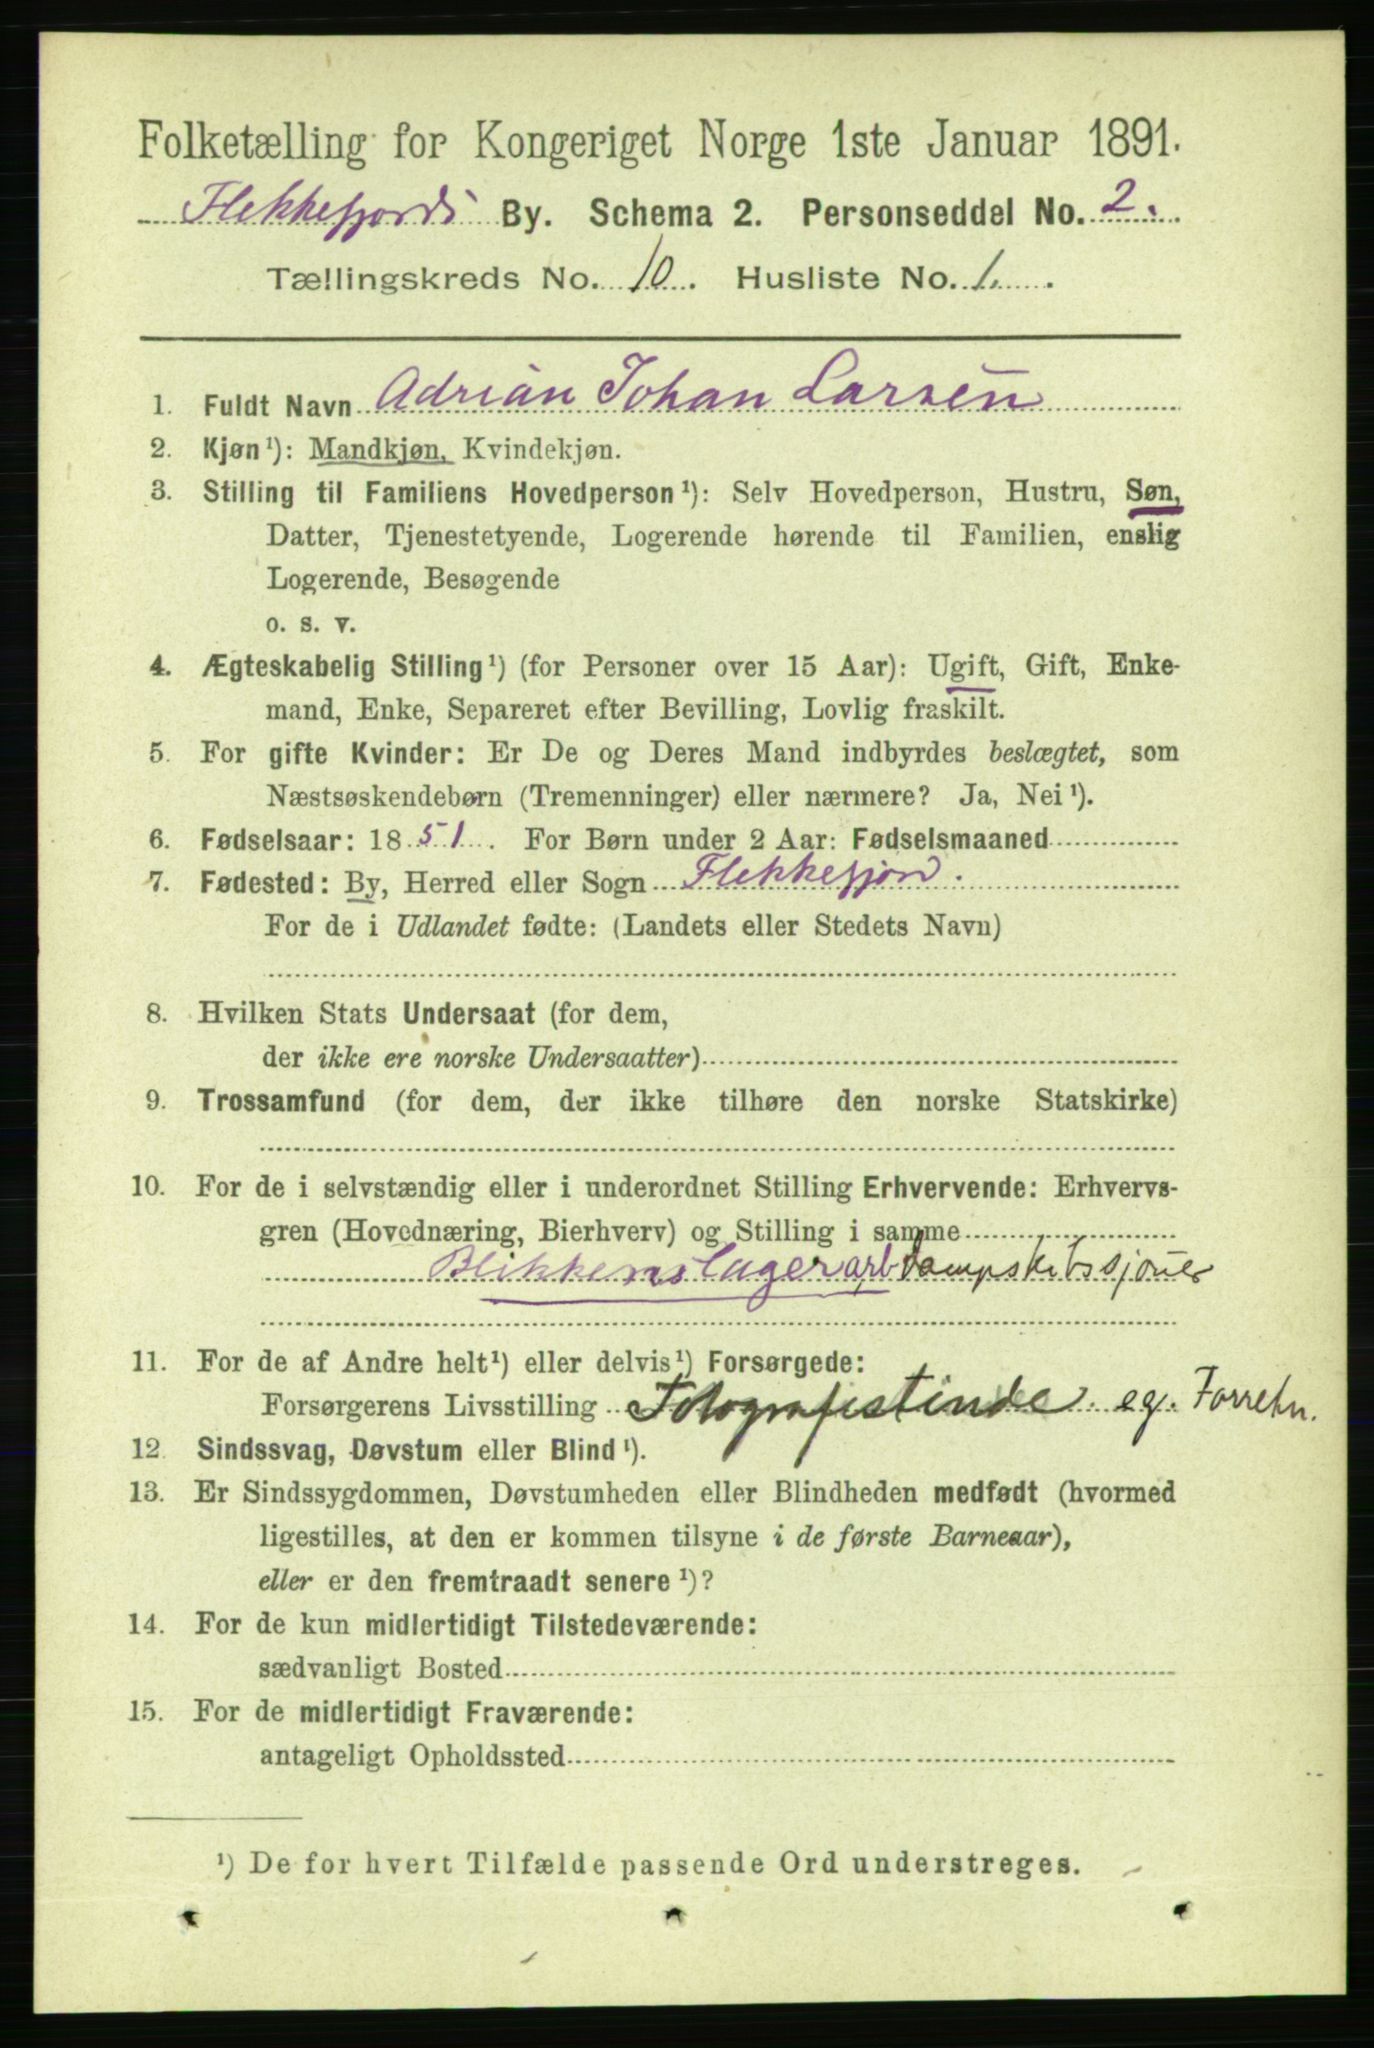 Folketælling for Kongeriget Norge 1ste Januar 1891.
Flekkefjords By. Schema 2. Personseddel No. 2.
Tællingskreds No. 10. Husliste No. 1.
1. Fuldt Navn Adrian Johan Larsen
2. Kjøn¹): Mandkjøn, Kvindekjøn.
3. Stilling til Familiens Hovedperson¹): Selv Hovedperson, Hustru, Søn,
Datter, Tjenestetyende, Logerende hørende til Familien, enslig
Logerende, Besøgende
o. s. v.
4. Ægteskabelig Stilling¹) (for Personer over 15 Aar): Ugift, Gift, Enke-
mand, Enke, Separeret efter Bevilling, Lovlig fraskilt.
5. For gifte Kvinder: Er De og Deres Mand indbyrdes beslægtet, som
Næstsøskendebørn (Tremenninger) eller nærmere? Ja, Nei¹).
6. Fødselsaar: 1851. For Børn under 2 Aar: Fødselsmaaned
7. Fødested: By, Herred eller Sogn Flekkefjord.
For de i Udlandet fødte: (Landets eller Stedets Navn)
8. Hvilken Stats Undersaat (for dem,
der ikke ere norske Undersaatter)
9. Trossamfund (for dem, der ikke tilhøre den norske Statskirke)
10. For de i selvstændig eller i underordnet Stilling Erhvervende: Erhvervs-
gren (Hovednæring, Bierhverv) og Stilling i samme
Blikkenslager arb
11. For de af Andre helt¹) eller delvis¹) Forsørgede:
Forsørgerens Livsstilling Fotografistinde eg. Forretn.
12. Sindssvag, Døvstum eller Blind¹).
13. Er Sindssygdommen, Døvstumheden eller Blindheden medfødt (hvormed
ligestilles, at den er kommen tilsyne i de første Barneaar),
eller er den fremtraadt senere¹)?
14. For de kun midlertidigt Tilstedeværende:
sædvanligt Bosted
15. For de midlertidigt Fraværende:
antageligt Opholdssted
¹) De for hvert Tilfælde passende Ord understreges.